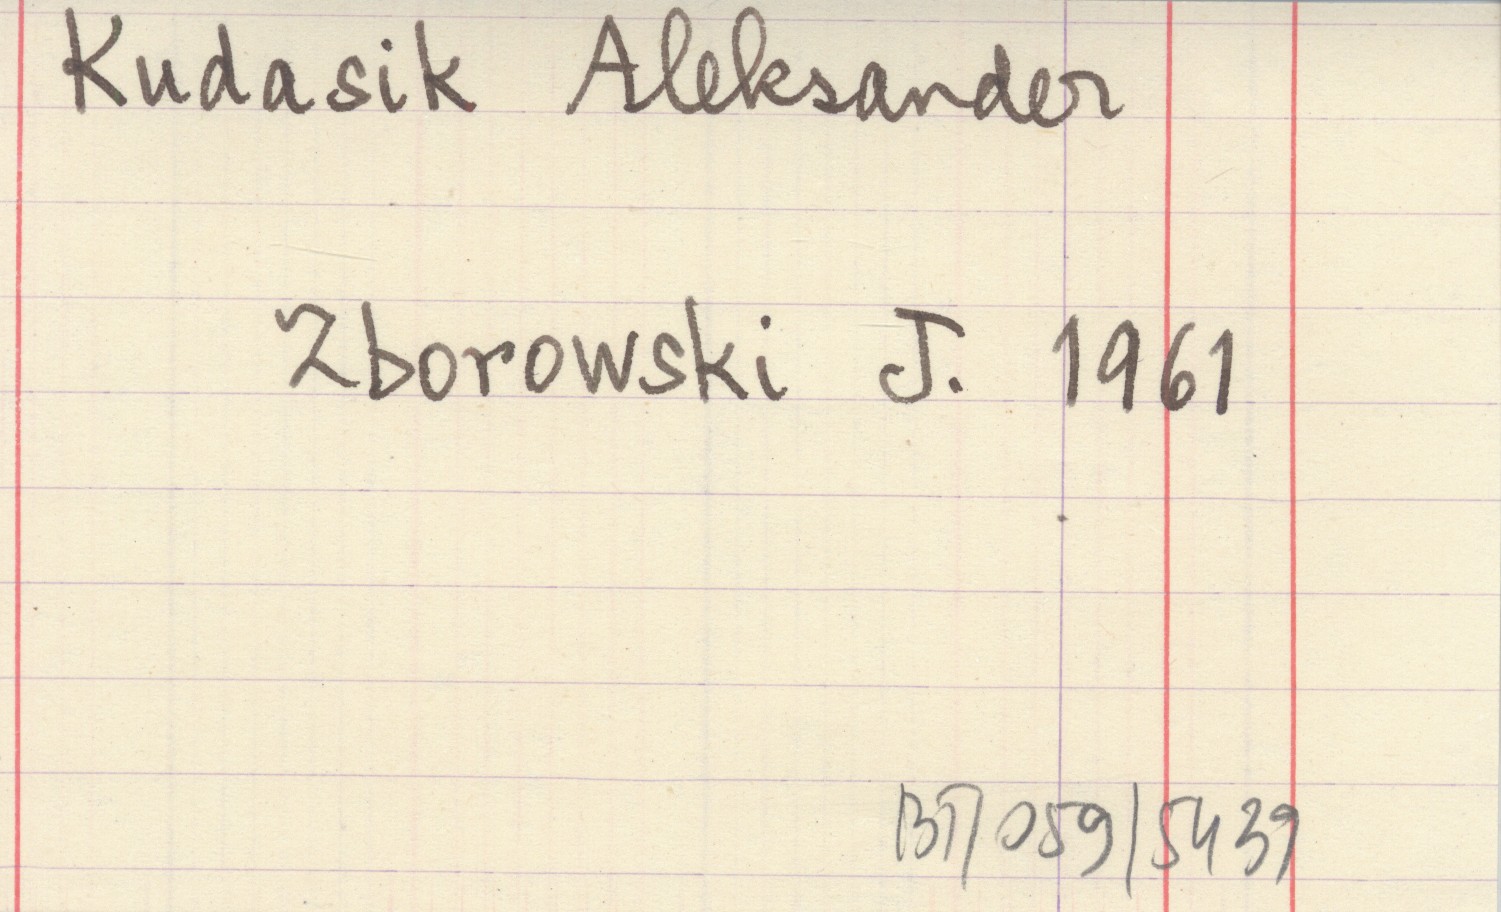 Kudasik Aleksander
Zborowski J. 1961
059/5439